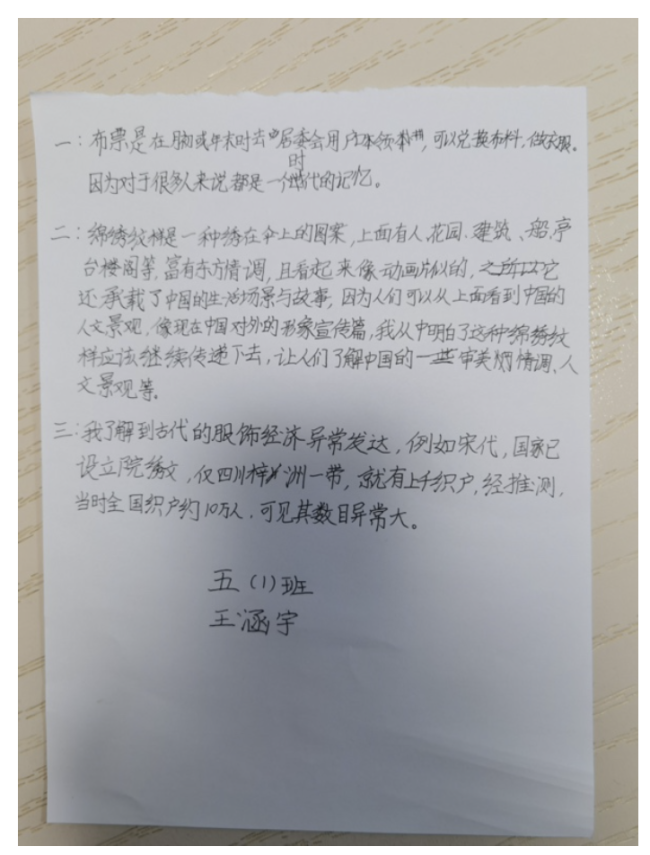 一:布票是在月初或年末时去居委会用户口本领取,可以兑换布料,做衣服。
因为对于很多人来说都是一个时代的记忆。
二:绵绣纹样是一种绣在伞上的图案,上面有人、花园、建筑、船、亭
台楼阁等,富有东方情调,且看起来像动画片似的,它
还承载了中国的生活场景与故事,因为人们可以从上面看到中国的
人文景观,像现在中国对外的形象宣传篇,我从中明白了这种绵绣纹
样应该继续传递下去,让人们了解中国的一些审美情调、人
文景观等。
三:我了解到古代的服饰经济异常发达,例如宋代,国家已
设立院绣文,仅四川梓洲一带,就有上千织户,经推测,
当时全国织户约10万人,可见其数目异常大。
五(1)班
王涵宇